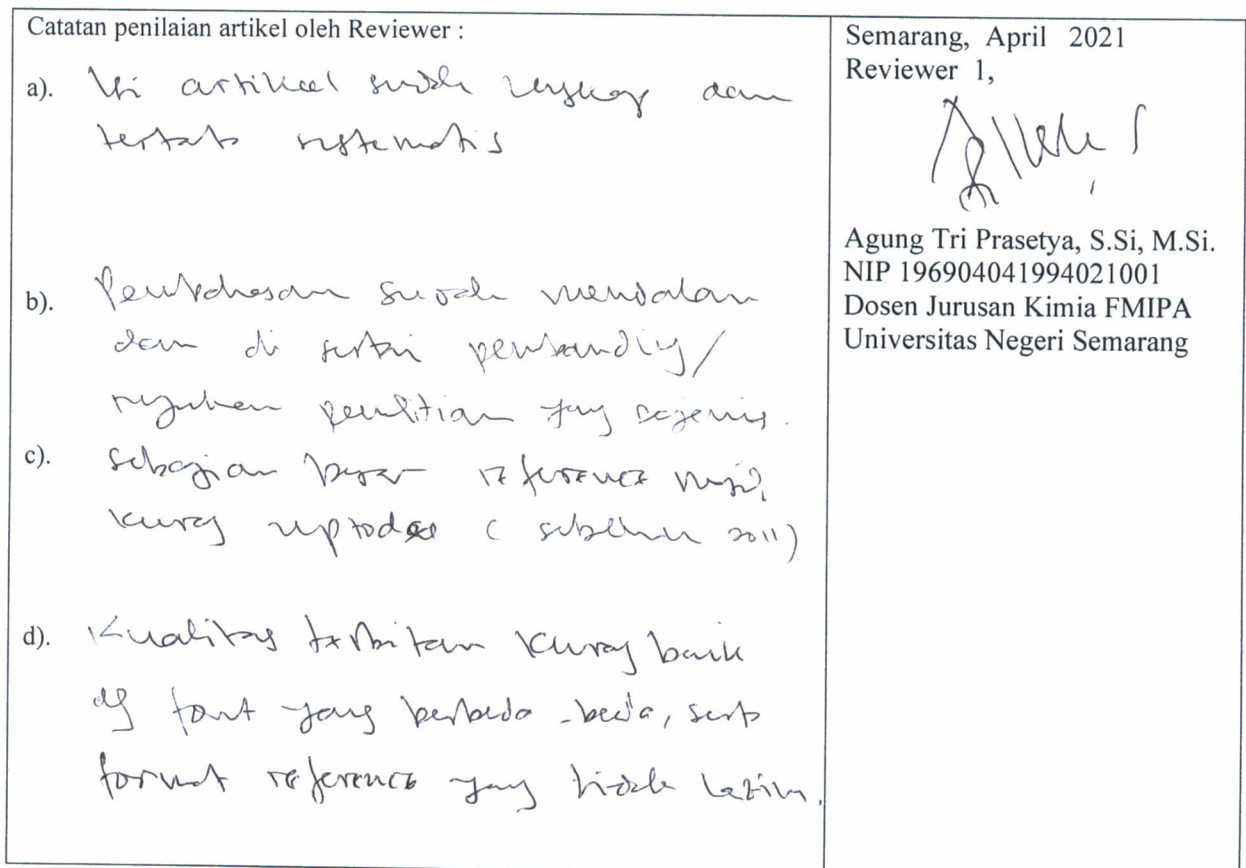 Catatan penilaian artikel oleh Reviewer :
a). Isi artikel sudah lengkap dan
tertata sistematis
b). Pembahasan sudah mendalam
dan di sertai pembanding/
rujukan penelitian yang sejenis.
c). Sebagian besar reference
kurang uptodate ( sebelum 2011)
d). Kualitas terbitan kurang baik
dg font yang berbeda-beda, serta
format reference yang tidak lazim.
Semarang, April 2021
Reviewer 1,
Agung Tri Prasetya, S.Si, M.Si.
NIP 196904041994021001
Dosen Jurusan Kimia FMIPA
Universitas Negeri Semarang